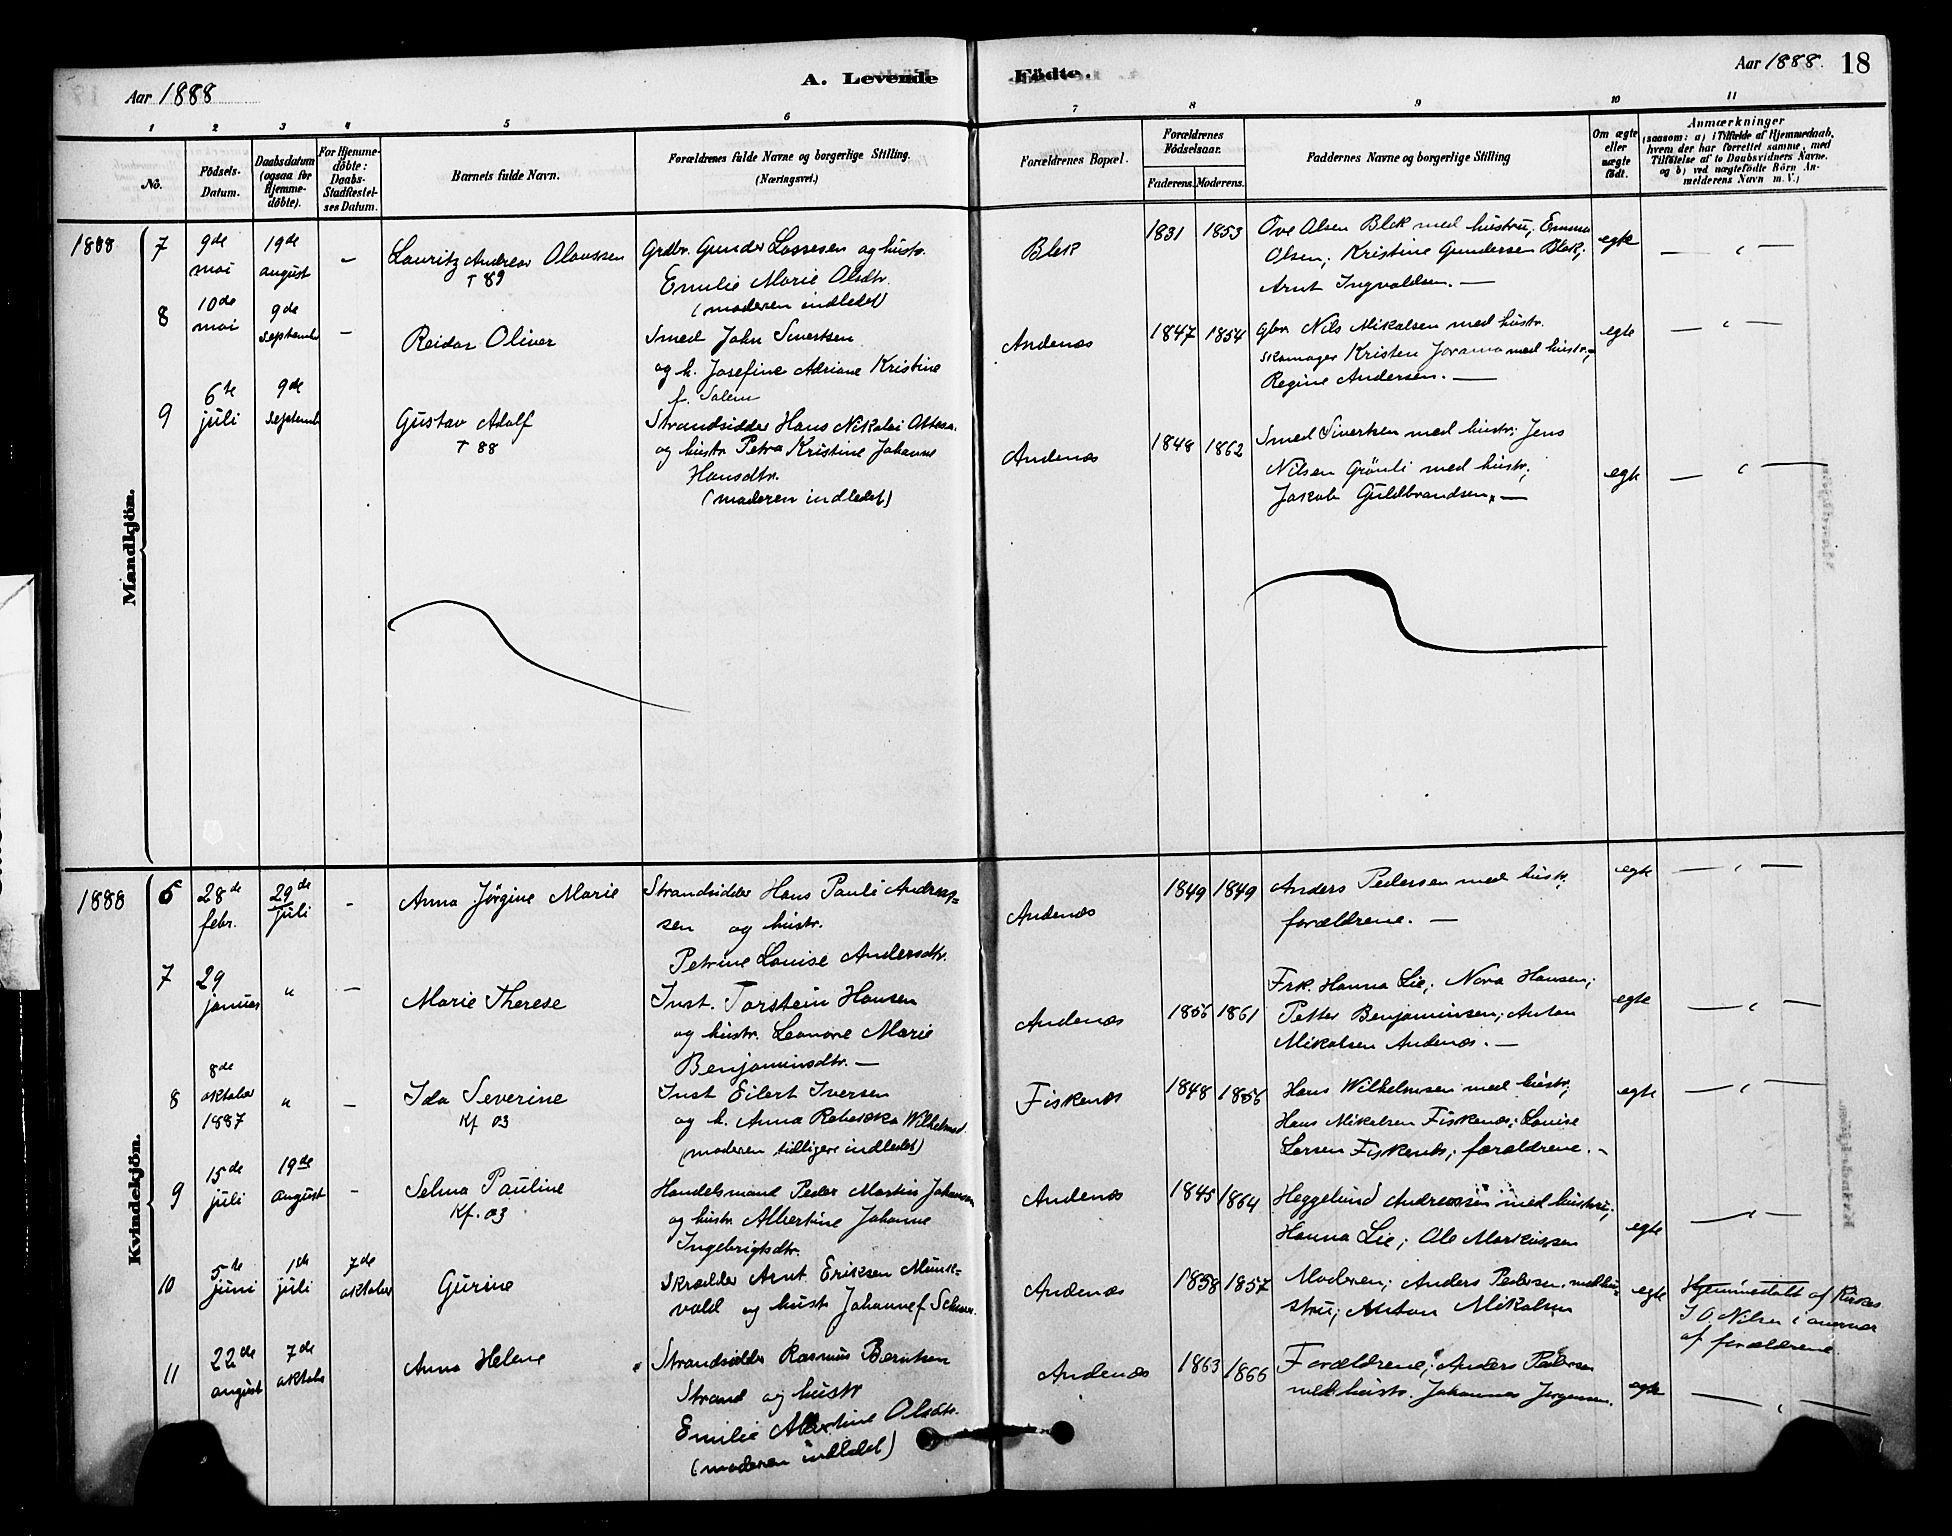 Aar 1888
A. Levende Fødte.
Aar 1888. 18
1 2 3 4 5 6 7 8 9 10 11
No.
Födsels-Datum.
Daabsdatum (ogsaa for Hjemme-döbte).
For Hjemme-döbte: Daabs-Stadfæstel-ses Datum.
Barnets fulde Navn.
Forældrenes fulde Navne og borgerlige Stilling.
(Næringsvei.)
Forældrenes Bopæl.
Forældrenes Födselsaar.
Faderens. Moderens.
Faddernes Navne og borgerlige Stilling
Om ægte eller uægte födt.
Anmærkninger
(saasom: a) i Tilfælde af Hjemmedaab, hvem der har forrettet samme, med Tilföielse af to Daabsvidners Navne, og b) ved uægtefödte Börn An-melderens Navn m. V.)
Mandkjön.
1888 7 9de mai 19de august –
Lauritz Andreas Olaussen
T 89
Grdbr. Gunder Lassesen og hustr.
Emilie Marie Olsdtr.
(moderen indledet)
Blek 1831 1853
Ove Olsen Blek med hustru; Emma
Olsen; Kristine Gundersen Blek;
Arnt Ingvaldsen. —
egte — " —
8 10de mai 9de september –
Reidar Oliver
Smed John Sivertsen
og h. Josefine Adriane Kristine
f. Salem
Andenæs 1847 1854
gbr. Nils Mikalsen med hustr.
skomager Kristen Jorama med hustr.;
Regine Andersen. —
egte — " —
9 6te juli 9de septemb
Gustav Adolf
T 88
Strandsidder Hans Nikolai
og hustr. Petra Kristine Johanne
Hansdtr.
(moderen indledet)
Andenæs 1848 1862
Smed Sivertsen med hustr; Jens
Nilsen Grönli med hustr;
Jakob Guldbrandsen. —
egte — " —
Kvindekjön.
1888 6 28de febr. 29de juli –
Anna Jørgine Marie
Strandsidder Hans Pauli Andreas=
sen og hustr.
Petrine Louise Andersdtr.
Andenæs 1849 1849
Anders Pedersen med hustr.
forældrene. —
egte — " —
7 29 januar " –
Marie Therese
Inst. Torstein Hansen
og hustr. Leonore Marie
Benjaminsdtr. —
Andenæs 1856 1861
Frk. Hanna Lie; Nora Hansen;
Petter Benjaminsen; Anton
Mikalsen Andenæs. —
egte — " —
8 8de oktober 1887 " –
Ida Severine
Kf 03
Inst Eilert Iversen
og h. Anna Rebekka Wilhelmsd.
(moderen tidligere indledet)
Fiskenæs 1848 1856
Hans Wilhelmsen med hustr;
Hans Mikalsen Fiskenæs; Louise
Larsen Fiskenæs; forældrene. –
egte — " —
9 15de juli 19de august –
Selma Pauline
Kf. 03
Handelsmand Peder Martin Johansen
og hustr Albertine Johanne
Ingebrigtsdtr.
Andenæs 1845 1864
Heggelund Andreassen med hustru;
Hanna Lie; Ole Markussen
egte — " —
10 5te juni 1ste juli 7de oktober
Gurine
Skrædder Arnt Eriksen Munk=
vold og hustr Johanne f.
Andenæs 1858 1857
Moderen; Anders Pedersen med hu-
stru; Anton Mikalsen
egte
Hjemmedøbt af Kirkes.
I O. Nilsen i nærvær
af forældrene
11 22de august 7de oktober
Anna Helene
Strandsidder Rasmus Berntsen
Strand og hustr
Emilie Albertine Olsdtr.
(moderen indledet)
Andenæs 1863 1866
Forældrene; Anders Pedersen
med hustr. Johannes Jørgensen.
egte — " —